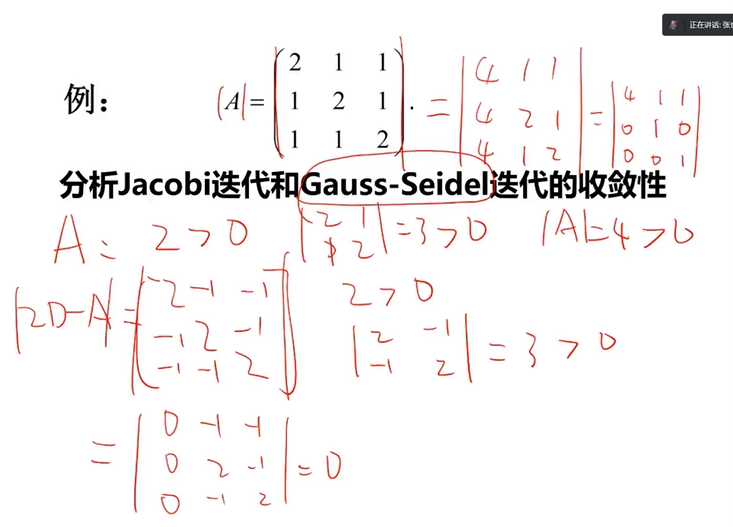 正在讲话: 张
例: |A| = ( 2 1 1 ; 1 2 1 ; 1 1 2 ) . = | 4 1 1 ; 4 2 1 ; 4 1 2 | = | 4 1 1 ; 0 1 0 ; 0 0 1 |
分析Jacobi迭代和Gauss-Seidel迭代的收敛性
A: 2>0 | 2 1 ; 1 2 | =3>0 |A|=4>0
|2D-A| = | 2 -1 -1 ; -1 2 -1 ; -1 -1 2 | 2>0
| 2 -1 ; -1 2 | = 3 > 0
= | 0 -1 -1 ; 0 2 -1 ; 0 -1 2 | = 0